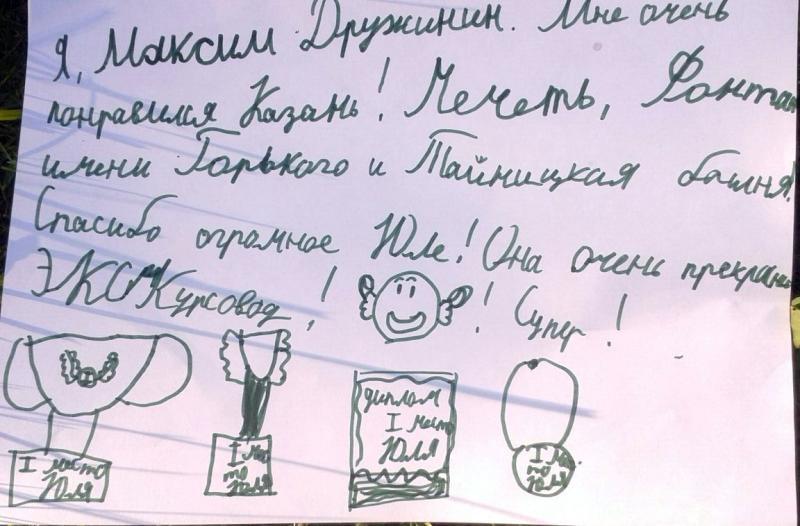 Я, Максим Дружинин. Мне очень
понравился Казань! Мечеть, Фонтан
имени Горького и Тайницкая башня!
Спасибо огромное Юле! Она очень прекрасн
ЭКСкурсовод! ! Супер!
I место
Юля
I мес
то
Юля
диплом
I место
Юля
I мес
то
Юля